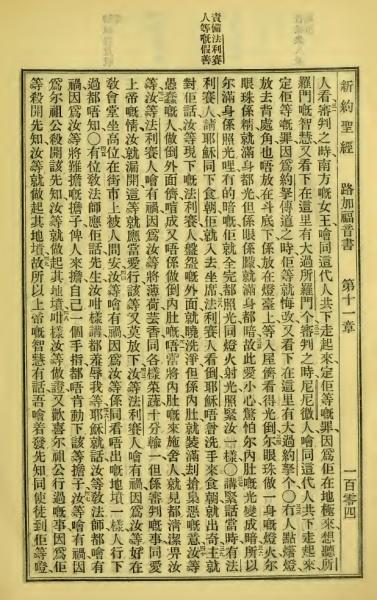 責備法利賽
人等嘅假善
新約聖經 路加福音書 第十一章 一百零四
人看審判之時南方嘅女王噲同這代人共下走起來定佢等嘅罪因爲佢在地極來想聽所
羅門嘅智慧又看下在這里有大過所羅門个審判之時尼尼微人噲同這代人共下走起來
定佢等嘅罪因爲約拏傳道之時佢等就悔改又看下在這里有大過約拏个○有人點燈
放去背處角也唔放在斗底下係放在燈臺上等入屋儕看得光倒尔眼珠做一身嘅燈火尔
眼珠係就滿身都光但係眼係矇就滿身都暗故此愛小心驚怕尔內肚嘅光變成暗所以
尔滿身係照光哩有的暗嘅佢就全完都照光同燈火射光照緊汝一樣○講緊話當時有法
利賽人請耶穌同下食朝佢就入去坐席法利賽人看倒耶穌唔曾洗手來食朝就出奇主就
對佢話汝等現下嘅法利賽人盤嘅外面就曉洗淨但係內肚就裝滿刧搶梟惡嘅意汝等
愚蠢嘅人做倒外面儕唔成又唔係做倒內肚唔當將內肚嘅來施舍人就見都清潔畀汝
等汝等法利賽人噲有禍因爲汝等將薄荷芸香同各樣菜蔬十分輸一但係審判嘅事同愛
上帝嘅情汝就漏開這等就應當愛行該等又莫放下汝等法利賽人噲有禍因爲汝等好在
敎會堂坐高位在街市上被人問安汝等噲有禍因爲汝等係同看唔出嘅地墳一樣人行下
過都唔知○有位敎法師應佢話先生汝咁樣講都羞辱我等耶穌就話汝等敎法師都噲有
禍因爲汝等將難擔嘅擔子俾人來擔自己一個手指都唔肯動下該等擔子汝等噲有禍因
爲尔祖公殺開該先知汝等就做起其地墳咁樣汝等做證又歡喜尔祖公行過嘅事因爲佢
等殺開先知汝等就做起其地墳故所以上帝嘅智慧有話吾噲着發先知同使徒到佢等噔